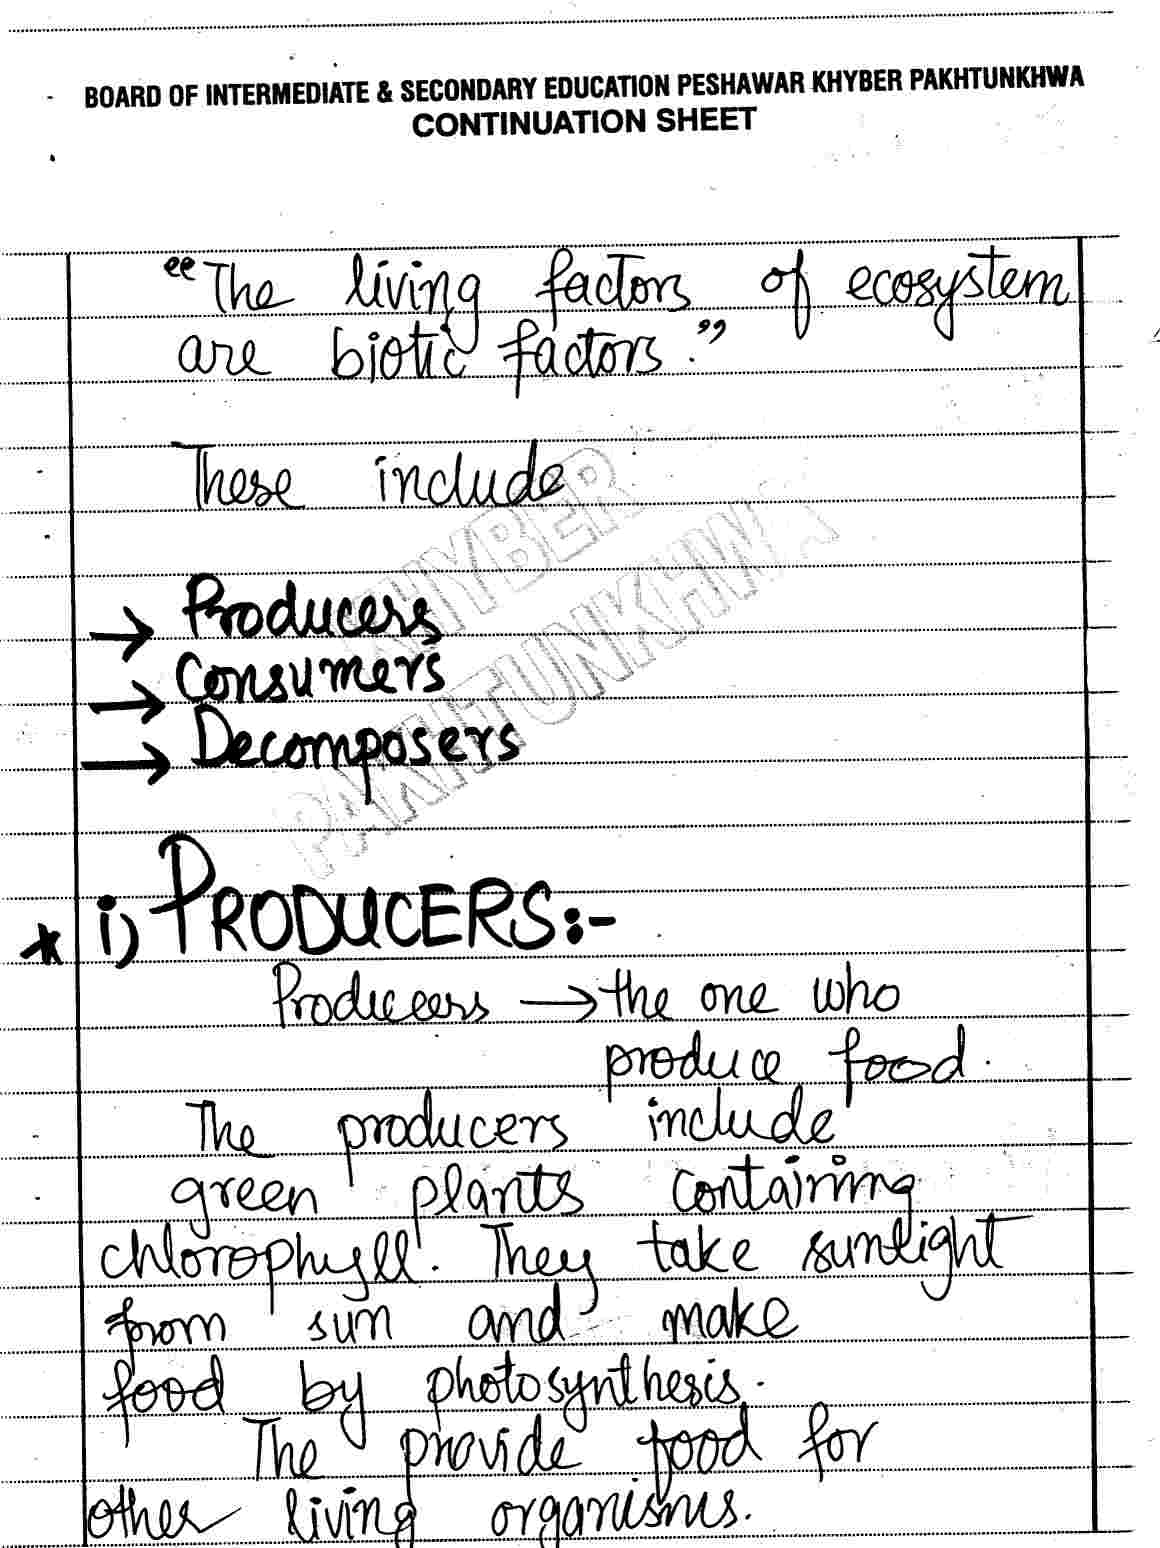 BOARD OF INTERMEDIATE & SECONDARY EDUCATION PESHAWAR KHYBER PAKHTUNKHWA
CONTINUATION SHEET
"The living factors of ecosystem
are biotic factors."
These include
KHYBER
PAKHTUNKHWA
→ Producers
→ Consumers
→ Decomposers
* i) PRODUCERS:-
Producers → the one who
produce food.
The producers include
green plants containing
chlorophyll. They take sunlight
from sun and make
food by photosynthesis.
The provide food for
other living organisms.